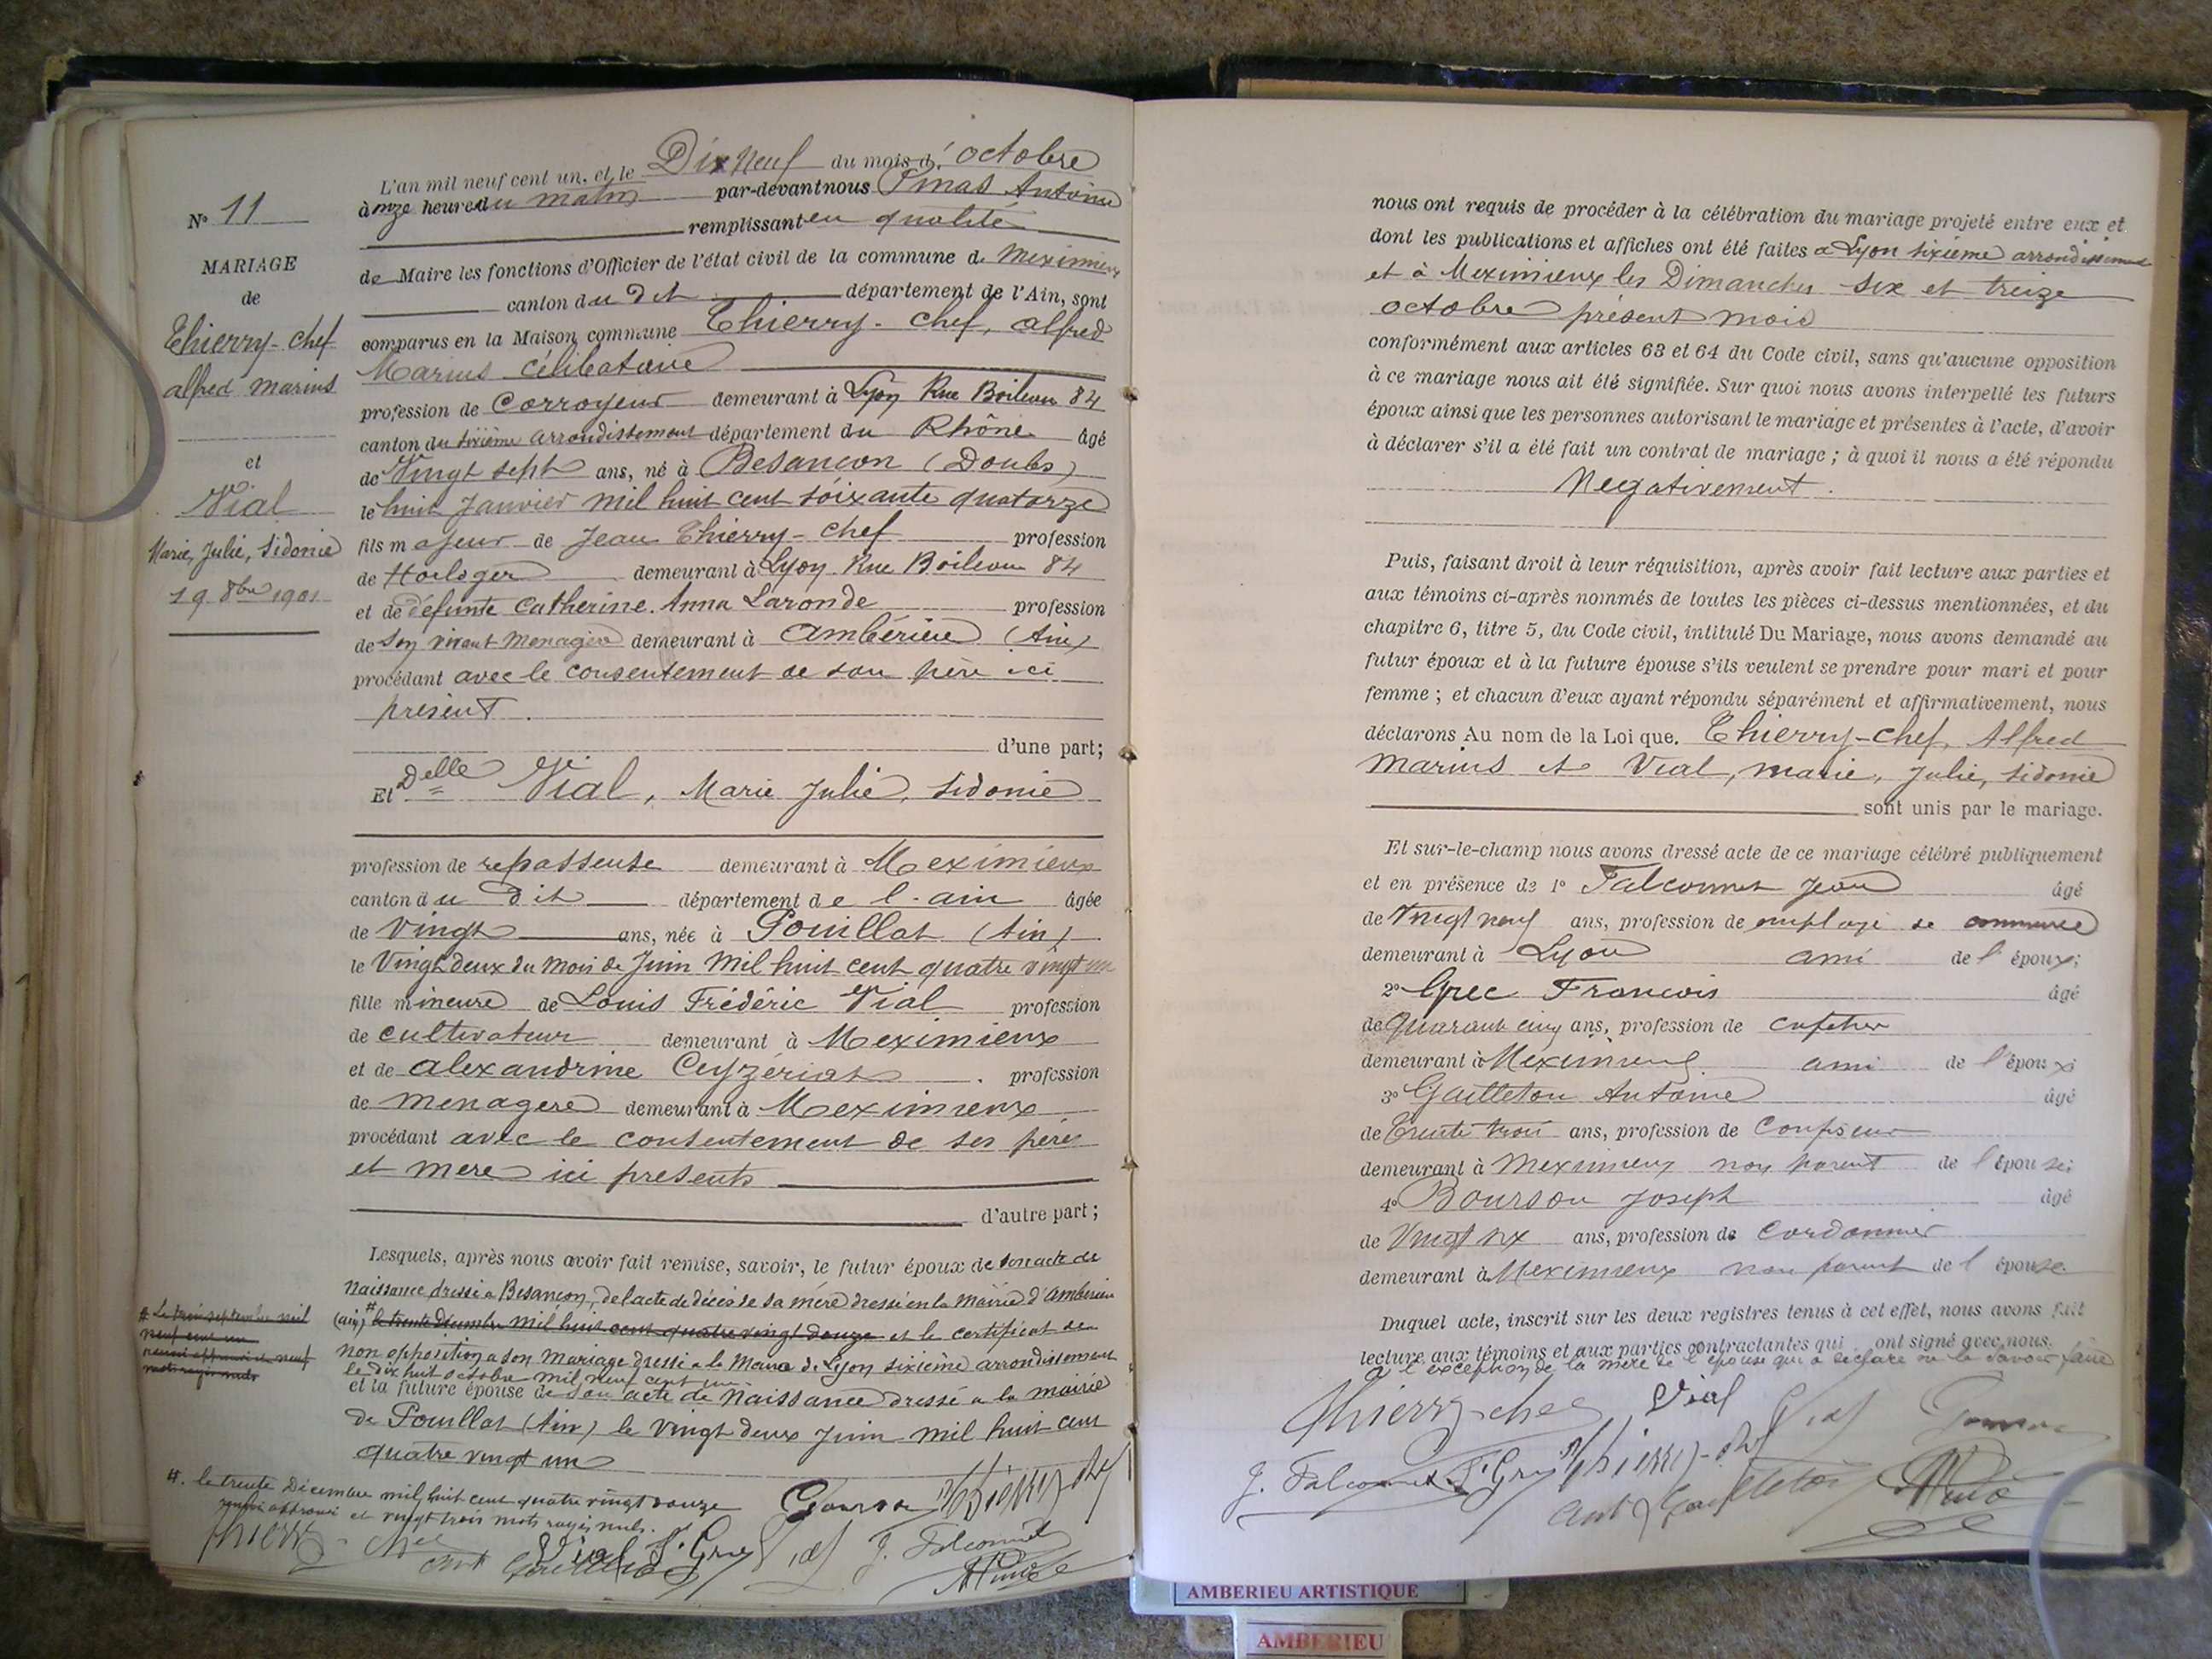 N° 11
MARIAGE
de
Thierry-chef
alfred marius
et
Vial
Marie, Julie, Sidonie
19 8bre 1901
L'an mil neuf cent un, et le Dix Neuf du mois d'octobre
à onze heure du matin par-devant nous Pinas Antoine
remplissant en qualité
de Maire les fonctions d'Officier de l'état civil de la commune de Meximieux
canton du dit département de l'Ain, sont
comparus en la Maison commune Thierry-chef, alfred
Marius Célibataire
profession de Corroyeur demeurant à Lyon Rue Boileau 84
canton du sixième arrondissement département du Rhône âgé
de Vingt sept ans, né à Besançon (Doubs)
le huit Janvier mil huit cent soixante quatorze
fils majeur de Jean Thierry-chef profession
de Horloger demeurant à Lyon Rue Boileau 84
et de défunte Catherine Anna Laronde profession
de son vivant menagère demeurant à Ambérieu (Ain)
procédant avec le consentement de son père ici
présent.
d'une part;
Et Delle Vial, Marie Julie, Sidonie
profession de repasseuse demeurant à Meximieux
canton du dit département de l'ain âgée
de Vingt ans, née à Pouillat (Ain)
le Vingt deux du mois de Juin Mil huit cent quatre vingt un
fille mineure de Louis Frédéric Vial profession
de cultivateur demeurant à Meximieux
et de alexandrine Ceyzériat profession
de menagere demeurant à Meximieux
procédant avec le consentement de ses pères
et mere ici presents
d'autre part;
Lesquels, après nous avoir fait remise, savoir, le futur époux de son acte de
Naissance dressé a Besançon, de l'acte de décès de sa mère dressé en la Mairie d'Ambérieu
(ain) # le trente Décembre mil huit cent quatre vingt douze et le certificat de
non opposition a son Mariage dressé a la Mairie de Lyon sixième arrondissement
le dix huit octobre mil neuf cent un
et la future épouse de son acte de Naissance dressé a la mairie
de Pouillat (Ain) le vingt deux Juin mil huit cent
quatre vingt un
# Le trois septembre mil
neuf cent un
renvoi approuvé et neuf
mots rayés nuls
#. le trente Décembre mil huit cent quatre vingt douze
renvoi approuvé et vingt trois mots rayés nuls.
Thierry-chef
Vial F. Grec Vial J. Falconnet
nous ont requis de procéder à la célébration du mariage projeté entre eux et
dont les publications et affiches ont été faites a Lyon sixième arrondissement
et à Meximieux les Dimanches six et treize
octobre présent mois
conformément aux articles 63 et 64 du Code civil, sans qu'aucune opposition
à ce mariage nous ait été signifiée. Sur quoi nous avons interpellé les futurs
époux ainsi que les personnes autorisant le mariage et présentes à l'acte, d'avoir
à déclarer s'il a été fait un contrat de mariage; à quoi il nous a été répondu
Negativement.
Puis, faisant droit à leur réquisition, après avoir fait lecture aux parties et
aux témoins ci-après nommés de toutes les pièces ci-dessus mentionnées, et du
chapitre 6, titre 5, du Code civil, intitulé Du Mariage, nous avons demandé au
futur époux et à la future épouse s'ils veulent se prendre pour mari et pour
femme; et chacun d'eux ayant répondu séparément et affirmativement, nous
déclarons Au nom de la Loi que. Thierry-chef, Alfred
Marius et Vial, marie, Julie, Sidonie
sont unis par le mariage.
Et sur-le-champ nous avons dressé acte de ce mariage célébré publiquement
et en présence de 1° Falconnet Jean âgé
de Vingt neuf ans, profession de employé de commerce
demeurant à Lyon ami de l'époux;
2° Grec Francois âgé
de Quarante cinq ans, profession de cafetier
demeurant à Meximieux ami de l'époux;
3° Gailleton Antoine âgé
de Trente trois ans, profession de Confiseur
demeurant à Meximieux non parent de l'épouse;
4° Bourson Joseph âgé
de Vingt six ans, profession de Cordonnier
demeurant à Meximieux non parent de l'épouse.
Duquel acte, inscrit sur les deux registres tenus à cet effet, nous avons fait
lecture aux témoins et aux parties contractantes qui ont signé avec nous.
a l'exception de la mère de l'épouse qui a declaré ne le savoir faire
Thierry chef Vial Vial
J. Falconnet F. Grec Thierry-chef
Ant Gailleton
AMBERIEU ARTISTIQUE
AMBERIEU